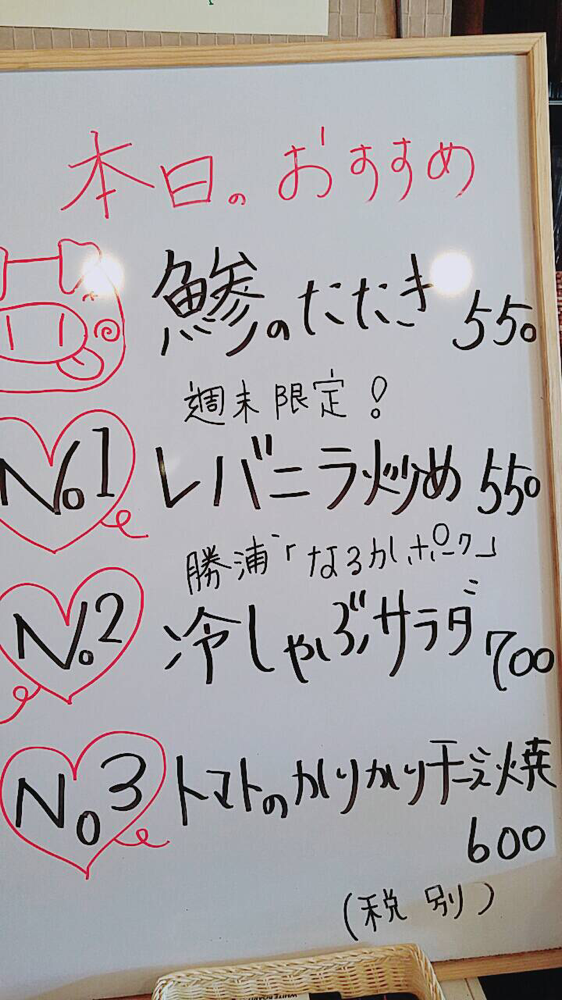 本日のおすすめ
鯵のたたき 550
週末限定!
No.1 レバニラ炒め 550
勝浦「なるかぽーク」
No.2 冷しゃぶサラダ 700
No3 トマトのかりかりチーズ焼
600
(税別)